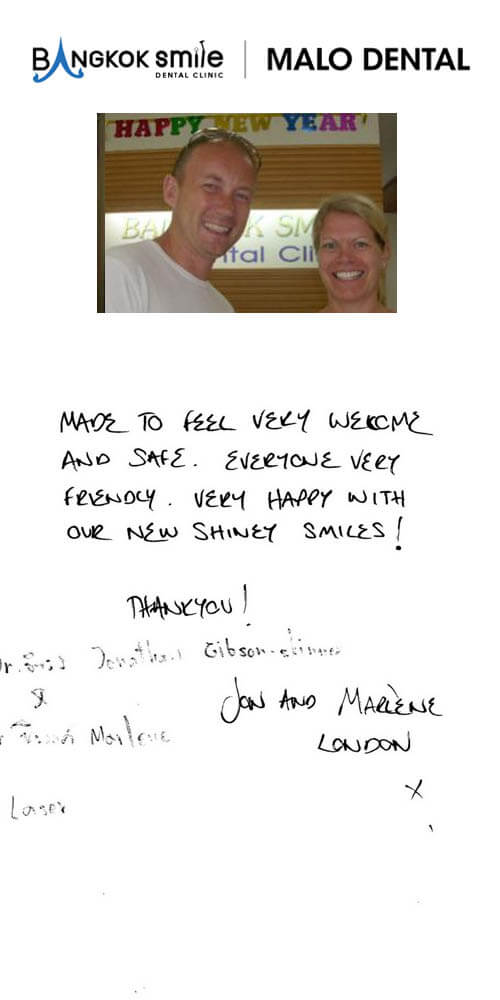 BANGKOK smile
DENTAL CLINIC
MALO DENTAL
HAPPY NEW YEAR
BA K SM
ntal Cli
MADE TO FEEL VERY WELCOME
AND SAFE. EVERYONE VERY
FRIENDLY. VERY HAPPY WITH
OUR NEW SHINEY SMILES!
THANKYOU!
Jonathan Gibson-skinner
JON AND MARLÈNE
Marlene
LONDON
X
Laser